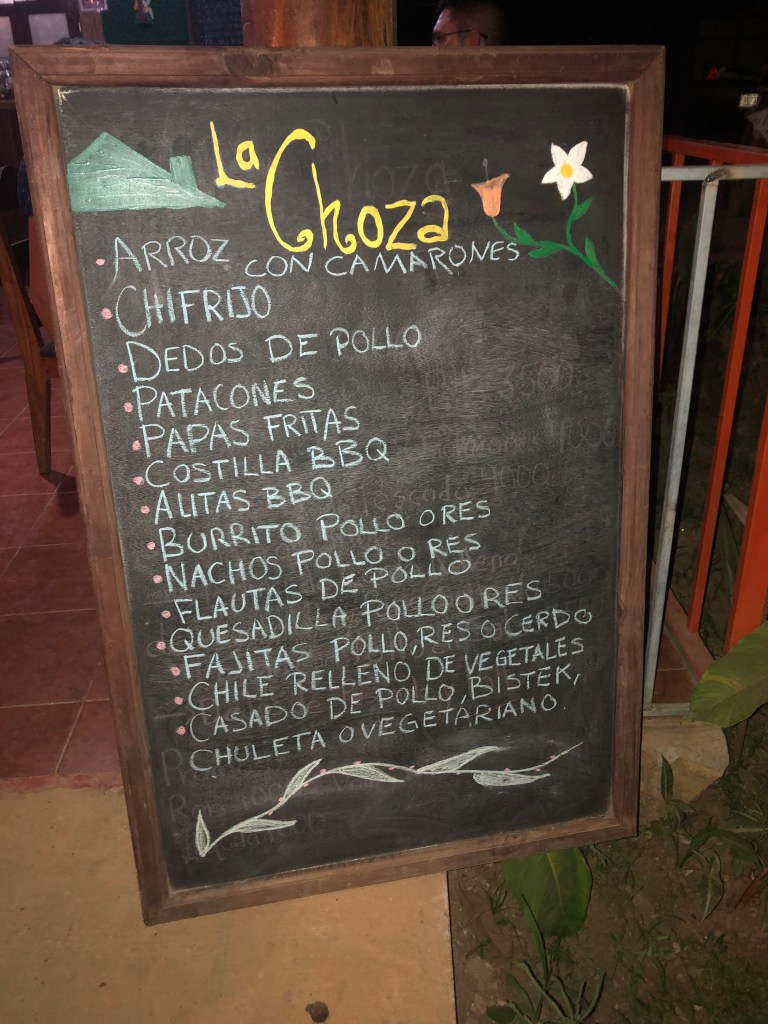 La Choza
• ARROZ CON CAMARONES
• CHIFRIJO
• DEDOS DE POLLO
• PATACONES
• PAPAS FRITAS
• COSTILLA BBQ
• ALITAS BBQ
• BURRITO POLLO O RES
• NACHOS POLLO O RES
• FLAUTAS DE POLLO
• QUESADILLA POLLO O RES
• FAJITAS POLLO, RES O CERDO
• CHILE RELLENO DE VEGETALES
• CASADO DE POLLO, BISTEK,
CHULETA O VEGETARIANO.